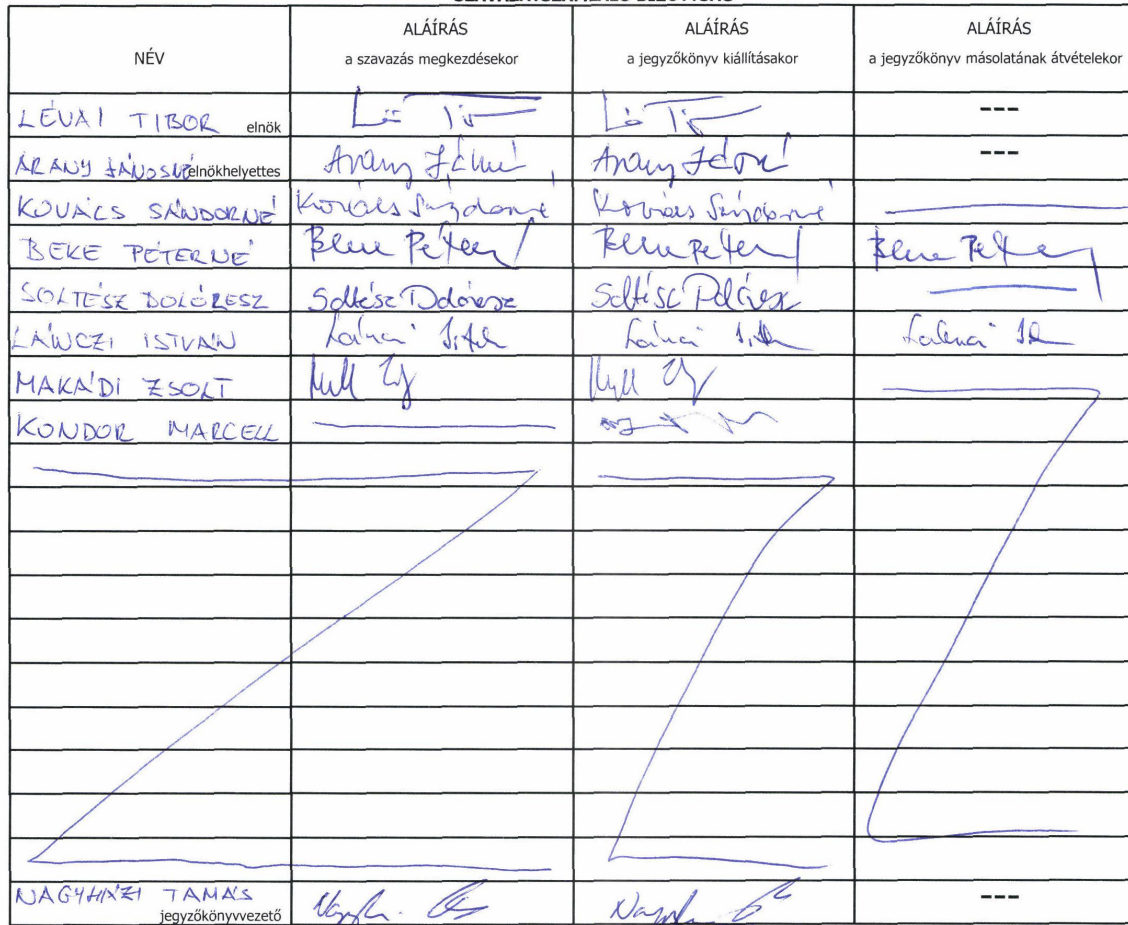 NÉV
ALÁÍRÁS
a szavazás megkezdésekor
ALÁÍRÁS
a jegyzőkönyv kiállításakor
ALÁÍRÁS
a jegyzőkönyv másolatának átvételekor
LÉVAI TIBOR elnök ---
ARANY JÁNOSNÉ elnökhelyettes Arany Jánosné Arany Jánosné ---
KOVÁCS SÁNDORNÉ Kovács Sándorné Kovács Sándorné
BEKE PÉTERNÉ
SOLTÉSZ DOLÓRESZ Soltész Dolóresz Soltész Dolóresz
LÁNCZI ISTVÁN
MAKÁDI ZSOLT
KONDOR MARCELL
NAGYHÁZI TAMÁS
jegyzőkönyvvezető ---